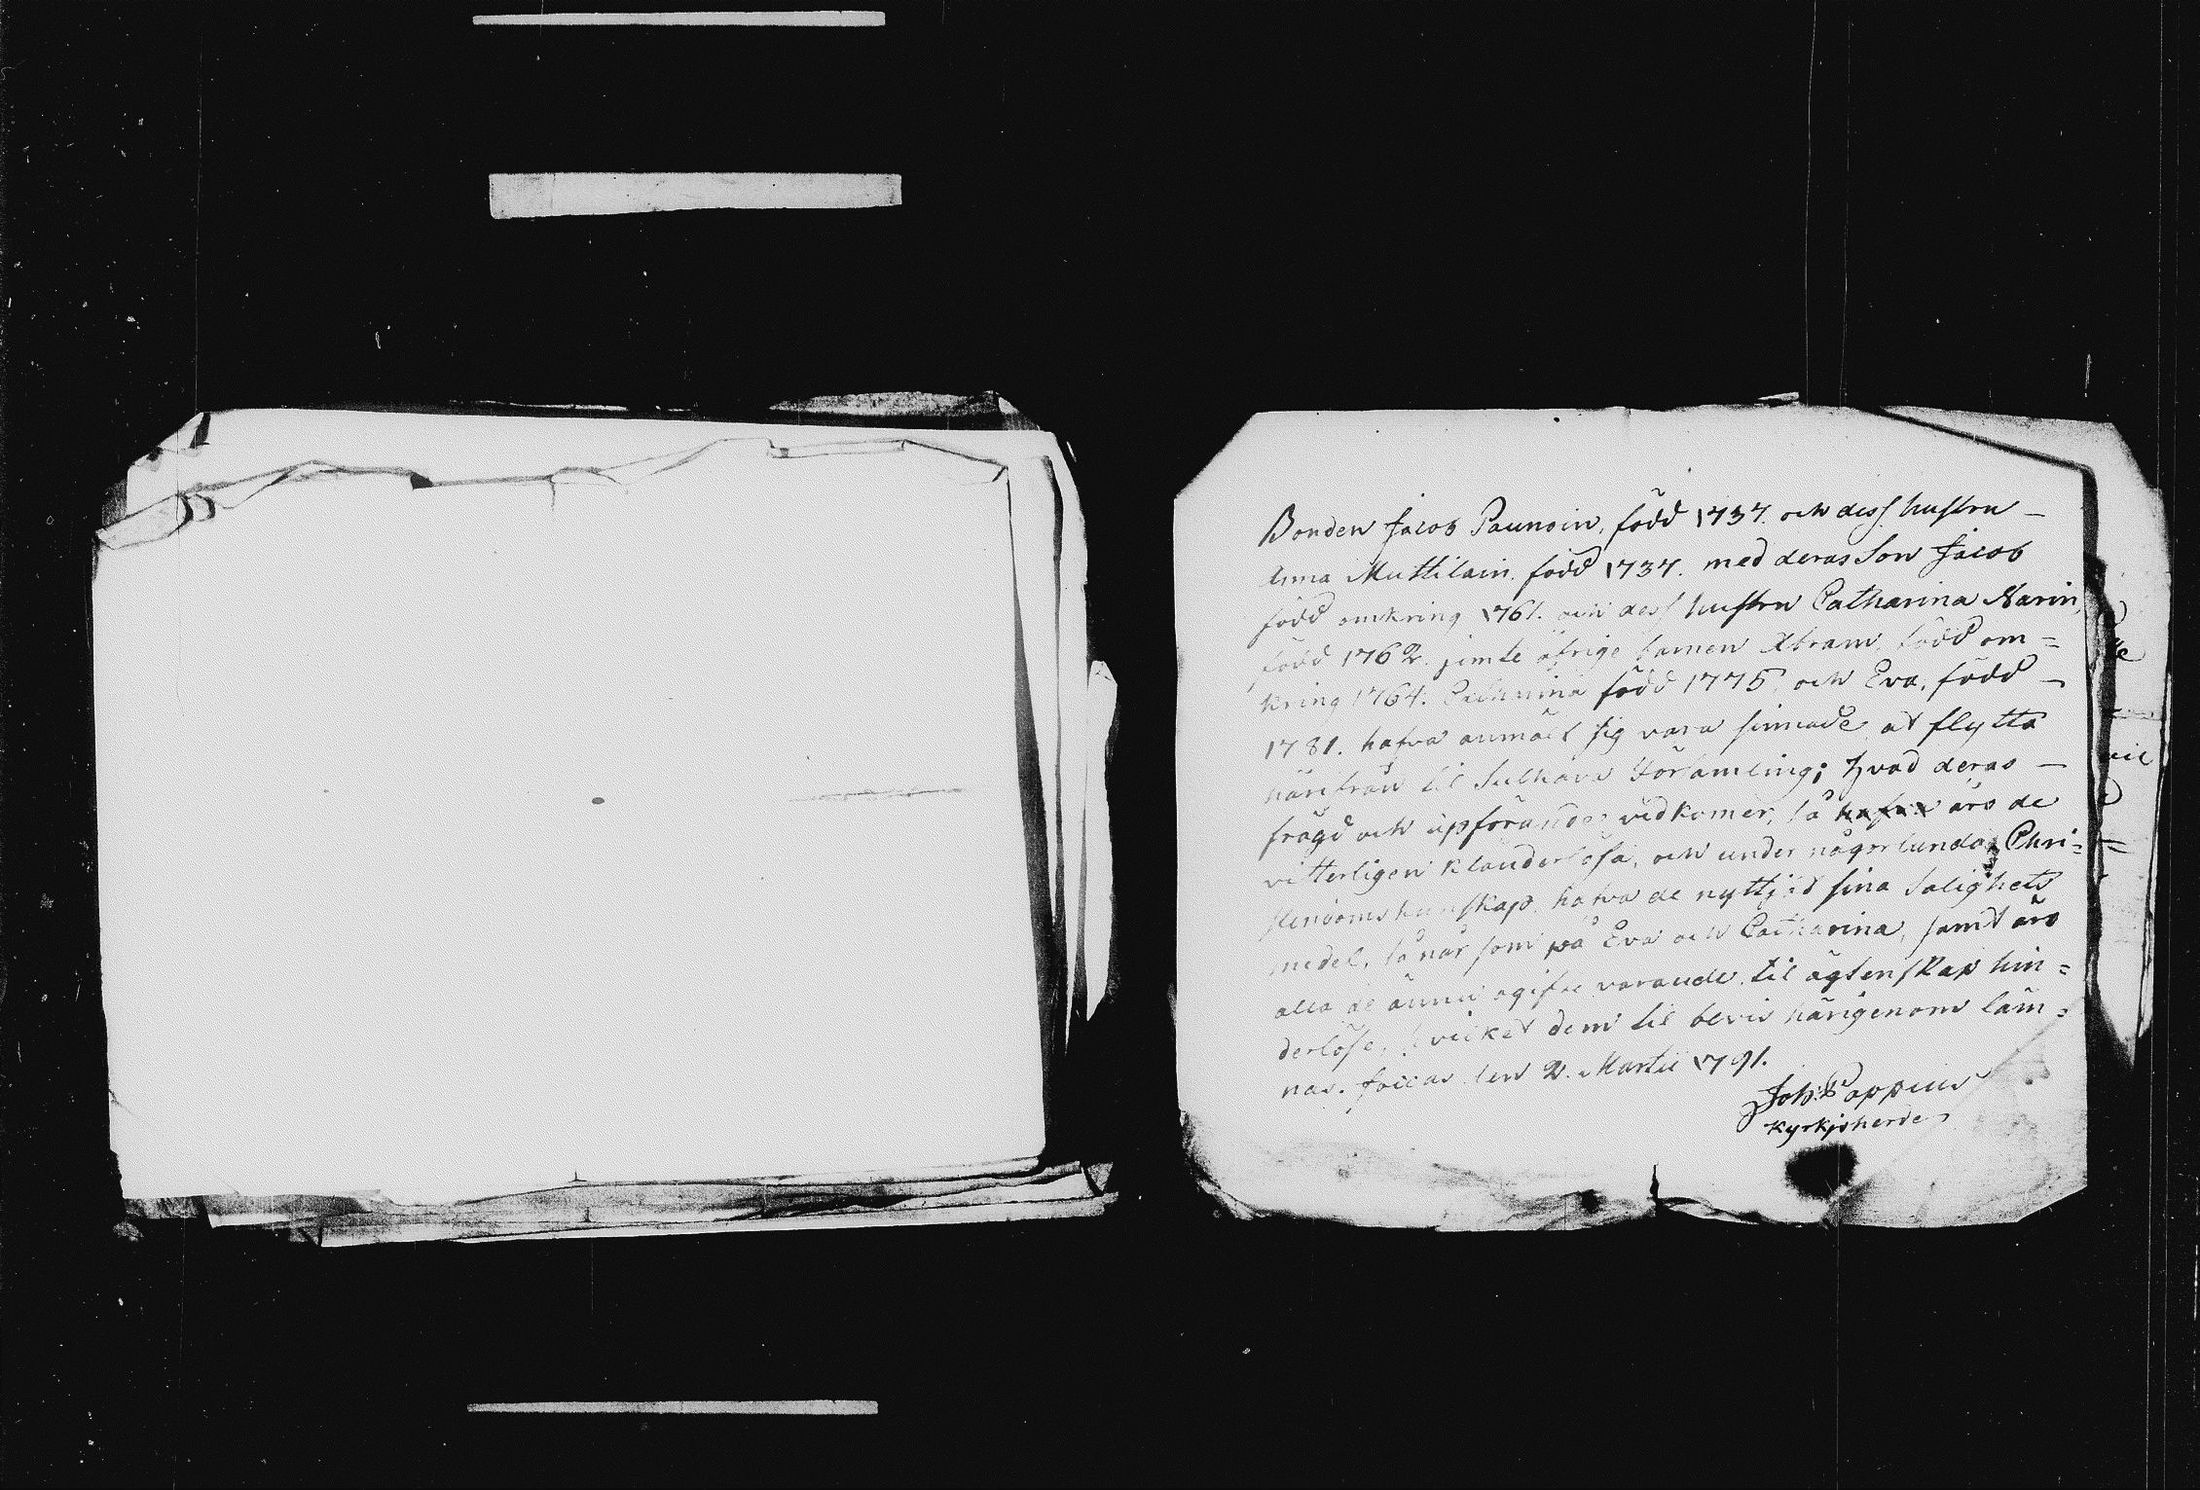 Bonden Jacob Paunoin, född 1737. och dess hustru –
Anna Muttilain. född 1737. med deras Son Jacob
född omkring 1761. och dess hustru Catharina Narin,
född 1762. jemte öfrige barnen Abram, född om=
kring 1764. Catharina född 1775, och Eva, född –
1781. hafva anmält sig vara sinnade at flytta
härifrån til Sulkava Församling; hvad deras –
frägd och upförande vidkomer, så äro de
vitterligen klanderlösa, och under någorlunda Chri=
stendomskunskap hafva de nyttjat sina Salighets
medel, så när som på Eva och Catharina, samt äro
alla de ännu ogifte varande til ägtenskap hin=
derlöse, hvilket dem til bevis härigenom läm=
nas. Joccas den 2. Martii 1791.
Joh: Poppius
Kyrkjoherde